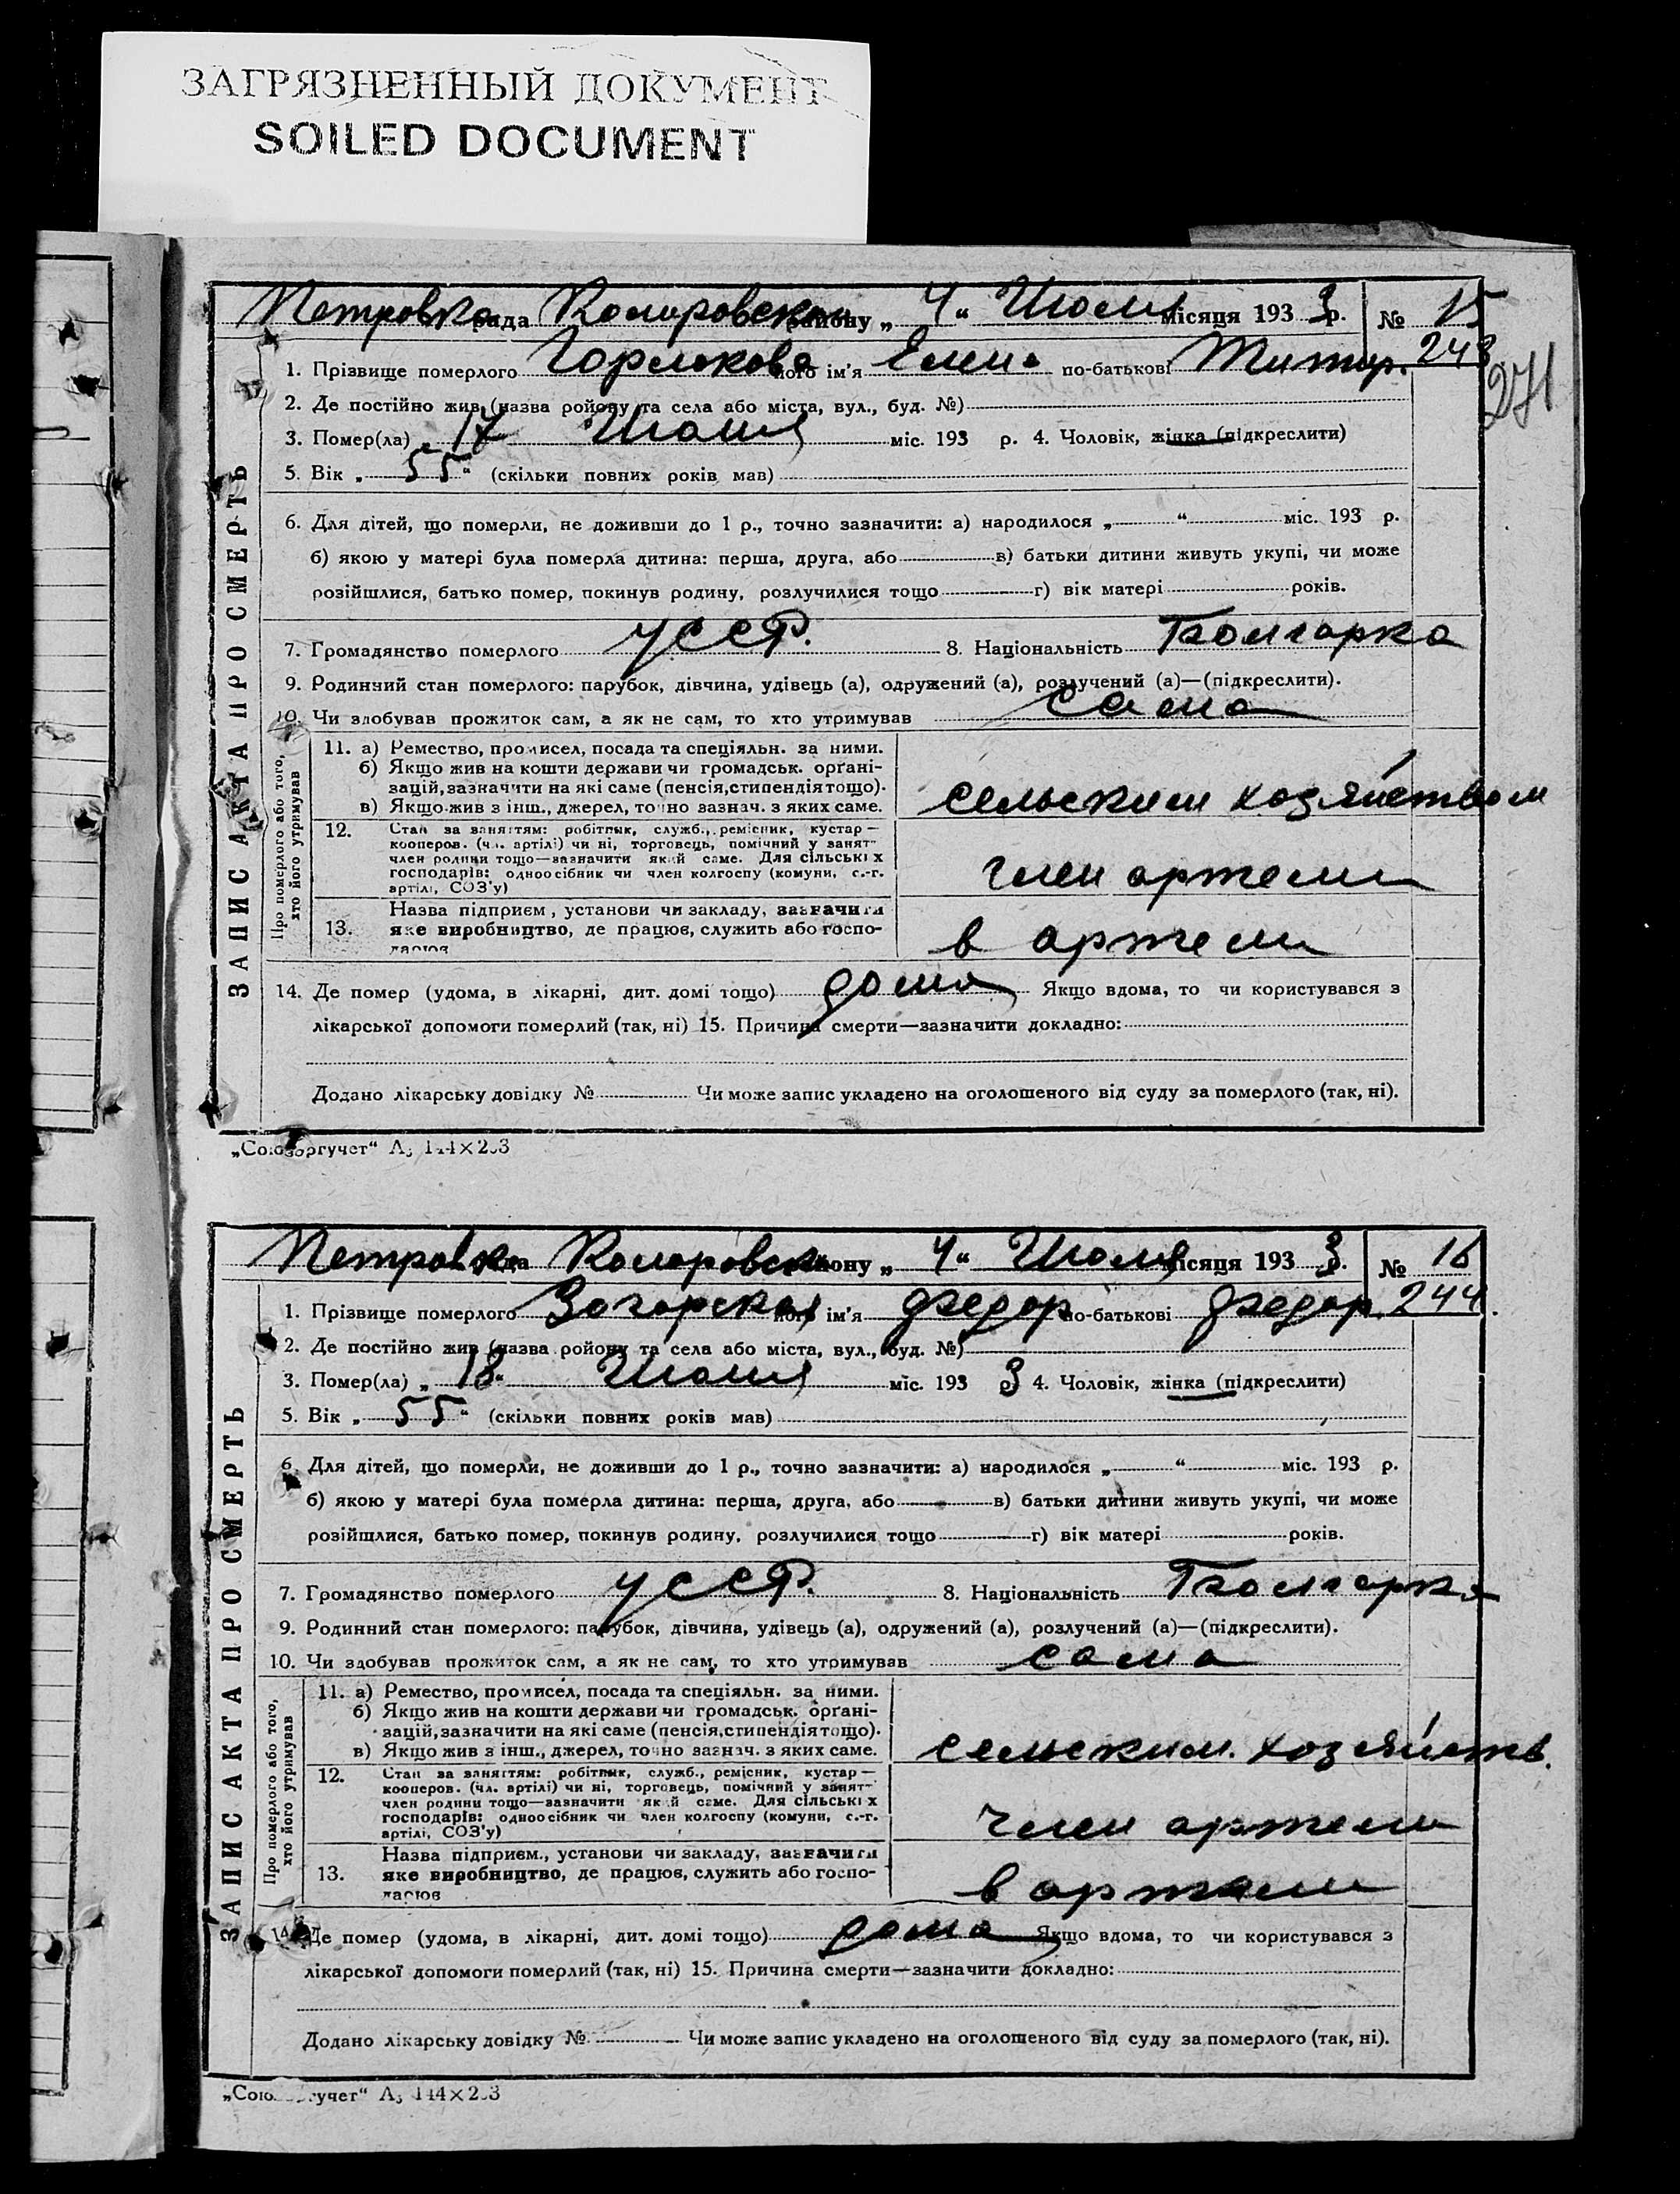 ЗАГРЯЗНЕННЫЙ ДОКУМЕНТ
SOILED DOCUMENT
Петровка рада Коларовской району „ 4 “ Июля місяця 193 3 р. № 15
1. Прізвище померлого Горлокова його ім'я Елена по-батькові Тимор. 243
271
2. Де постійно жив (назва ройону та села або міста, вул., буд. №)
3. Помер(ла) „ 17 Июня міс. 193 р. 4. Чоловік, жінка (підкреслити)
5. Вік „ 55 “ (скільки повних років мав)
6. Для дітей, що померли, не доживши до 1 р., точно зазначити: а) народилося „ “ міс. 193 р.
б) якою у матері була померла дитина: перша, друга, або в) батьки дитини живуть укупі, чи може
розійшлися, батько помер, покинув родину, розлучилися тощо г) вік матері років.
7. Громадянство померлого УССР. 8. Національність Болгарка
9. Родинний стан померлого: парубок, дівчина, удівець (а), одружений (а), розлучений (а)—(підкреслити).
10. Чи здобував прожиток сам, а як не сам, то хто утримував сама
ЗАПИС АКТА ПРО СМЕРТЬ
Про померлого або того, хто його утримував
11. а) Ремество, промисел, посада та спеціяльн. за ними.
б) Якщо жив на кошти держави чи громадськ. орґані-
зацій, зазначити на які саме (пенсія, стипендія тощо).
в) Якщо жив з інш., джерел, точно зазнач. з яких саме.
сельским хозяйством
12. Стан за заняттям: робітник, служб., ремісник, кустар—
кооперов. (чл. артілі) чи ні, торговець, помічний у занят-
член родини тощо—зазначити який саме. Для сільських
господарів: одноосібник чи член колгоспу (комуни, с.-г.
артілі, СОЗ'у)
член артели
13. Назва підприєм., установи чи закладу, зазначити
яке виробництво, де працює, служить або госпо-
дарює
в артели
14. Де помер (удома, в лікарні, дит. домі тощо) дома Якщо вдома, то чи користувався з
лікарської допомоги померлий (так, ні) 15. Причина смерти—зазначити докладно:
Додано лікарську довідку № Чи може запис укладено на оголошеного від суду за померлого (так, ні).
„Союзоргучет“ А₅ 144×203
Петровка рада Коларовской району „ 4 “ Июля місяця 193 3 р. № 16
1. Прізвище померлого Загорская його ім'я Федор по-батькові Федор. 244.
2. Де постійно жив (назва ройону та села або міста, вул., буд. №)
3. Помер(ла) „ 18 “ Июня міс. 193 3 р. 4. Чоловік, жінка (підкреслити)
5. Вік „ 55 “ (скільки повних років мав)
6. Для дітей, що померли, не доживши до 1 р., точно зазначити: а) народилося „ “ міс. 193 р.
б) якою у матері була померла дитина: перша, друга, або в) батьки дитини живуть укупі, чи може
розійшлися, батько помер, покинув родину, розлучилися тощо г) вік матері років.
7. Громадянство померлого УССР. 8. Національність Болгарка
9. Родинний стан померлого: парубок, дівчина, удівець (а), одружений (а), розлучений (а)—(підкреслити).
10. Чи здобував прожиток сам, а як не сам, то хто утримував сама
ЗАПИС АКТА ПРО СМЕРТЬ
Про померлого або того, хто його утримував
11. а) Ремество, промисел, посада та спеціяльн. за ними.
б) Якщо жив на кошти держави чи громадськ. орґані-
зацій, зазначити на які саме (пенсія, стипендія тощо).
в) Якщо жив з інш., джерел, точно зазнач. з яких саме.
сельским. хозяйств.
12. Стан за заняттям: робітник, служб., ремісник, кустар—
кооперов. (чл. артілі) чи ні, торговець, помічний у занят-
член родини тощо—зазначити який саме. Для сільських
господарів: одноосібник чи член колгоспу (комуни, с.-г.
артілі, СОЗ'у)
член артели
13. Назва підприєм., установи чи закладу, зазначити
яке виробництво, де працює, служить або госпо-
дарює
в артели
14. Де помер (удома, в лікарні, дит. домі тощо) дома Якщо вдома, то чи користувався з
лікарської допомоги померлий (так, ні) 15. Причина смерти—зазначити докладно:
Додано лікарську довідку № Чи може запис укладено на оголошеного від суду за померлого (так, ні).
„Союзоргучет“ А₅ 144×203